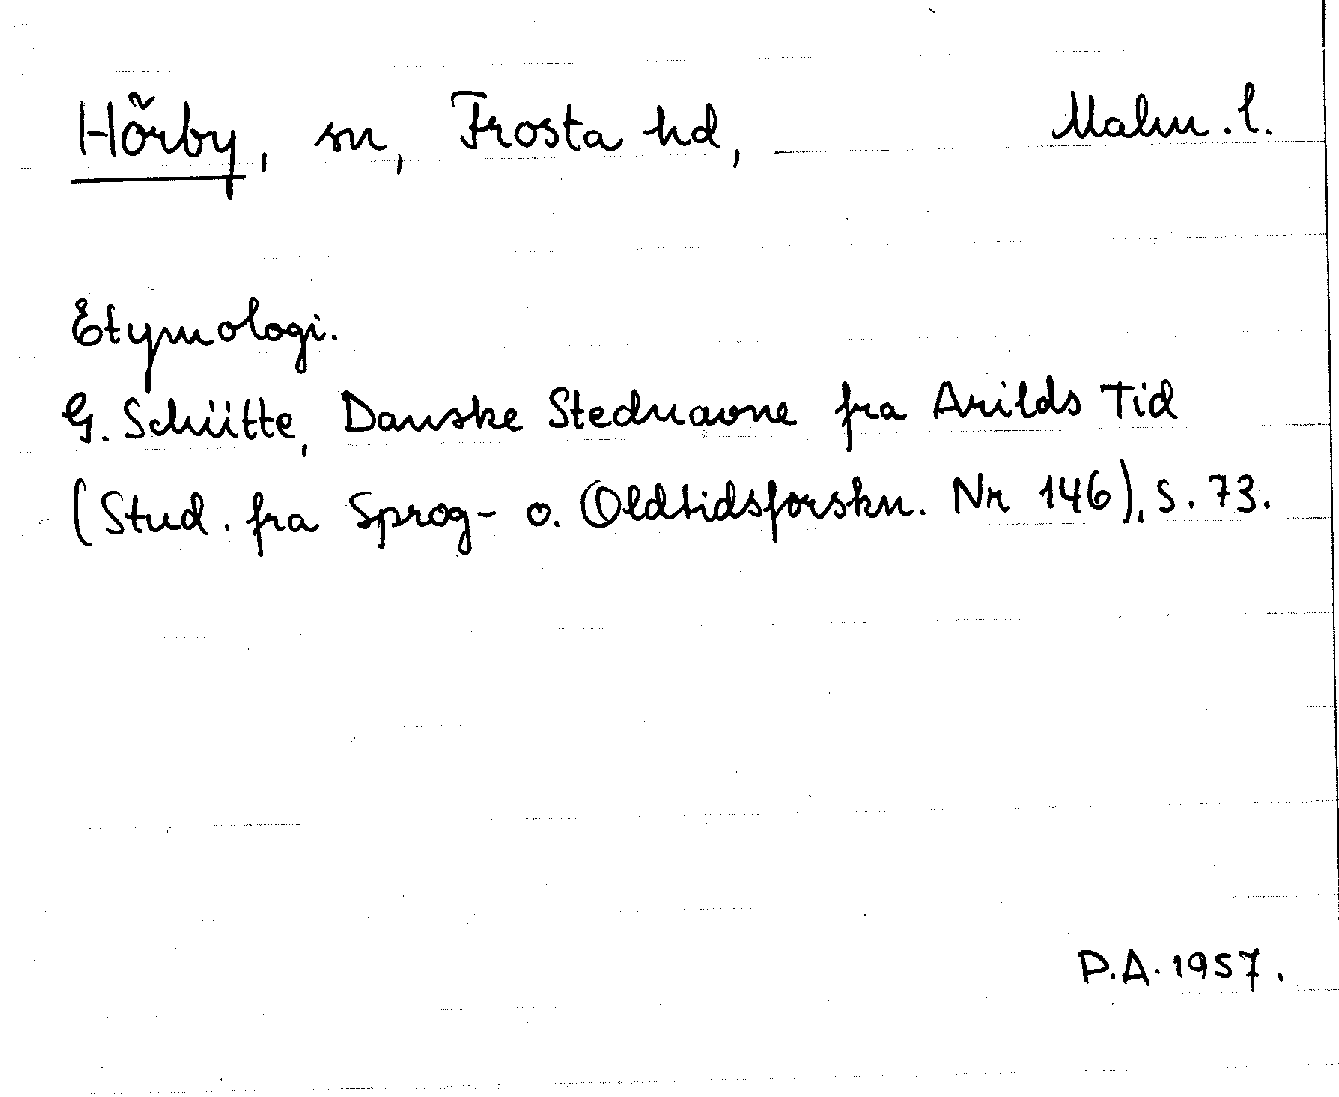 Hörby, sn, Frosta hd, Malm. l.
Etymologi.
G. Schütte, Danske Stednavne fra Arilds Tid
(Stud. fra Sprog- o. Oldtidsforskn. Nr 146), s. 73.
P.A. 1957.